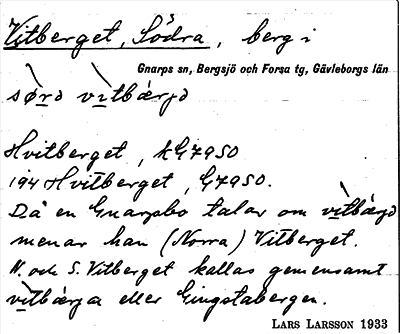 Vitberget, Södra, berg i
Gnarps sn, Bergsjö och Forsa tg, Gävleborgs län
sørə vìtbærjə
Hvitberget, kG7950
194 Hvitberget, G7950.
Då en Gnarpsbo talar om vìtbærjə
menar han (Norra) Vitberget.
N. och S. Vitberget kallas gemensamt
vìtbærja eller Gingstabergen.
LARS LARSSON 1933